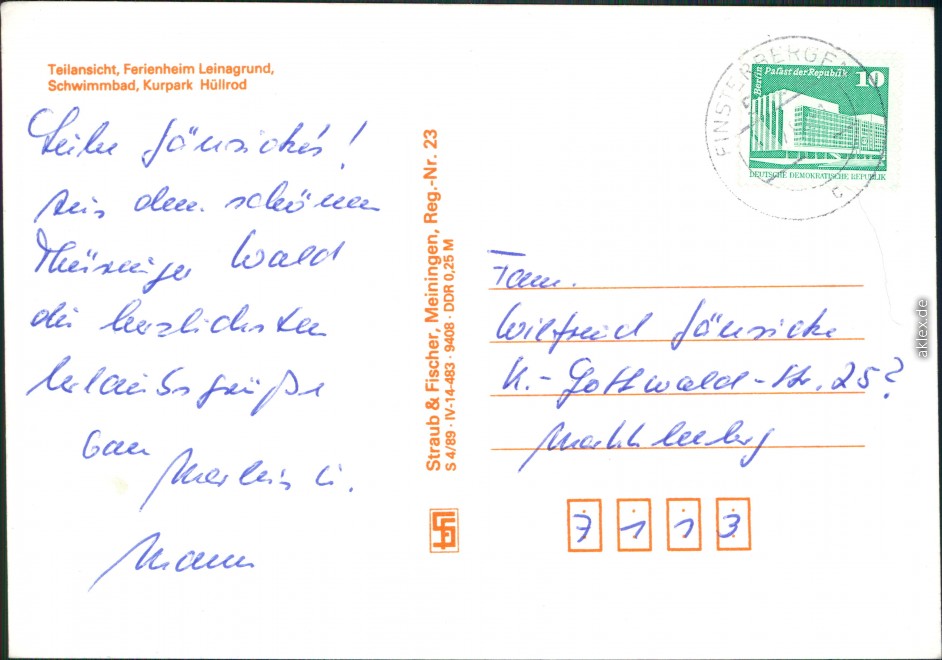 Teilansicht, Ferienheim Leinagrund,
Schwimmbad, Kurpark Hüllrod
Liebe Jänsickes!
Aus dem schönen
Thüringer Wald
die herzlichsten
Urlaubsgrüße
von
u.
Mann
Straub & Fischer, Meiningen, Reg.-Nr. 23
S 4/89 · IV-14-483 · 9408 · DDR 0,25 M
FINSTERBERGEN
Berlin
Palast der Republik
10
DEUTSCHE DEMOKRATISCHE REPUBLIK
Fam.
Wilfried Jänsicke
K.-Gottwald-Str. 25?
Markkleeberg
7 1 1 3
aklex.de